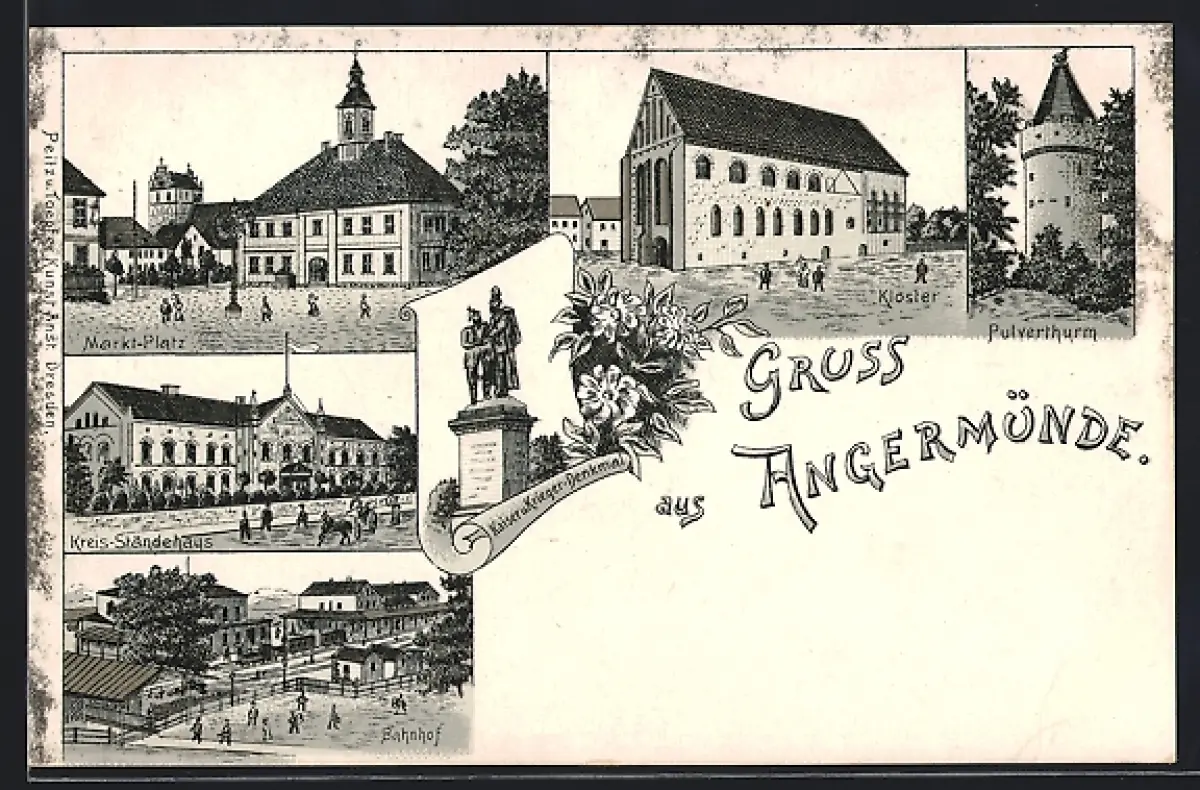 Markt-Platz
Kloster
Pulverthurm
GRUSS
aus ANGERMÜNDE.
Kreis-Ständehaus
Kaiser u. Krieger-Denkmal
Bahnhof
Kunst-Anst. Dresden.